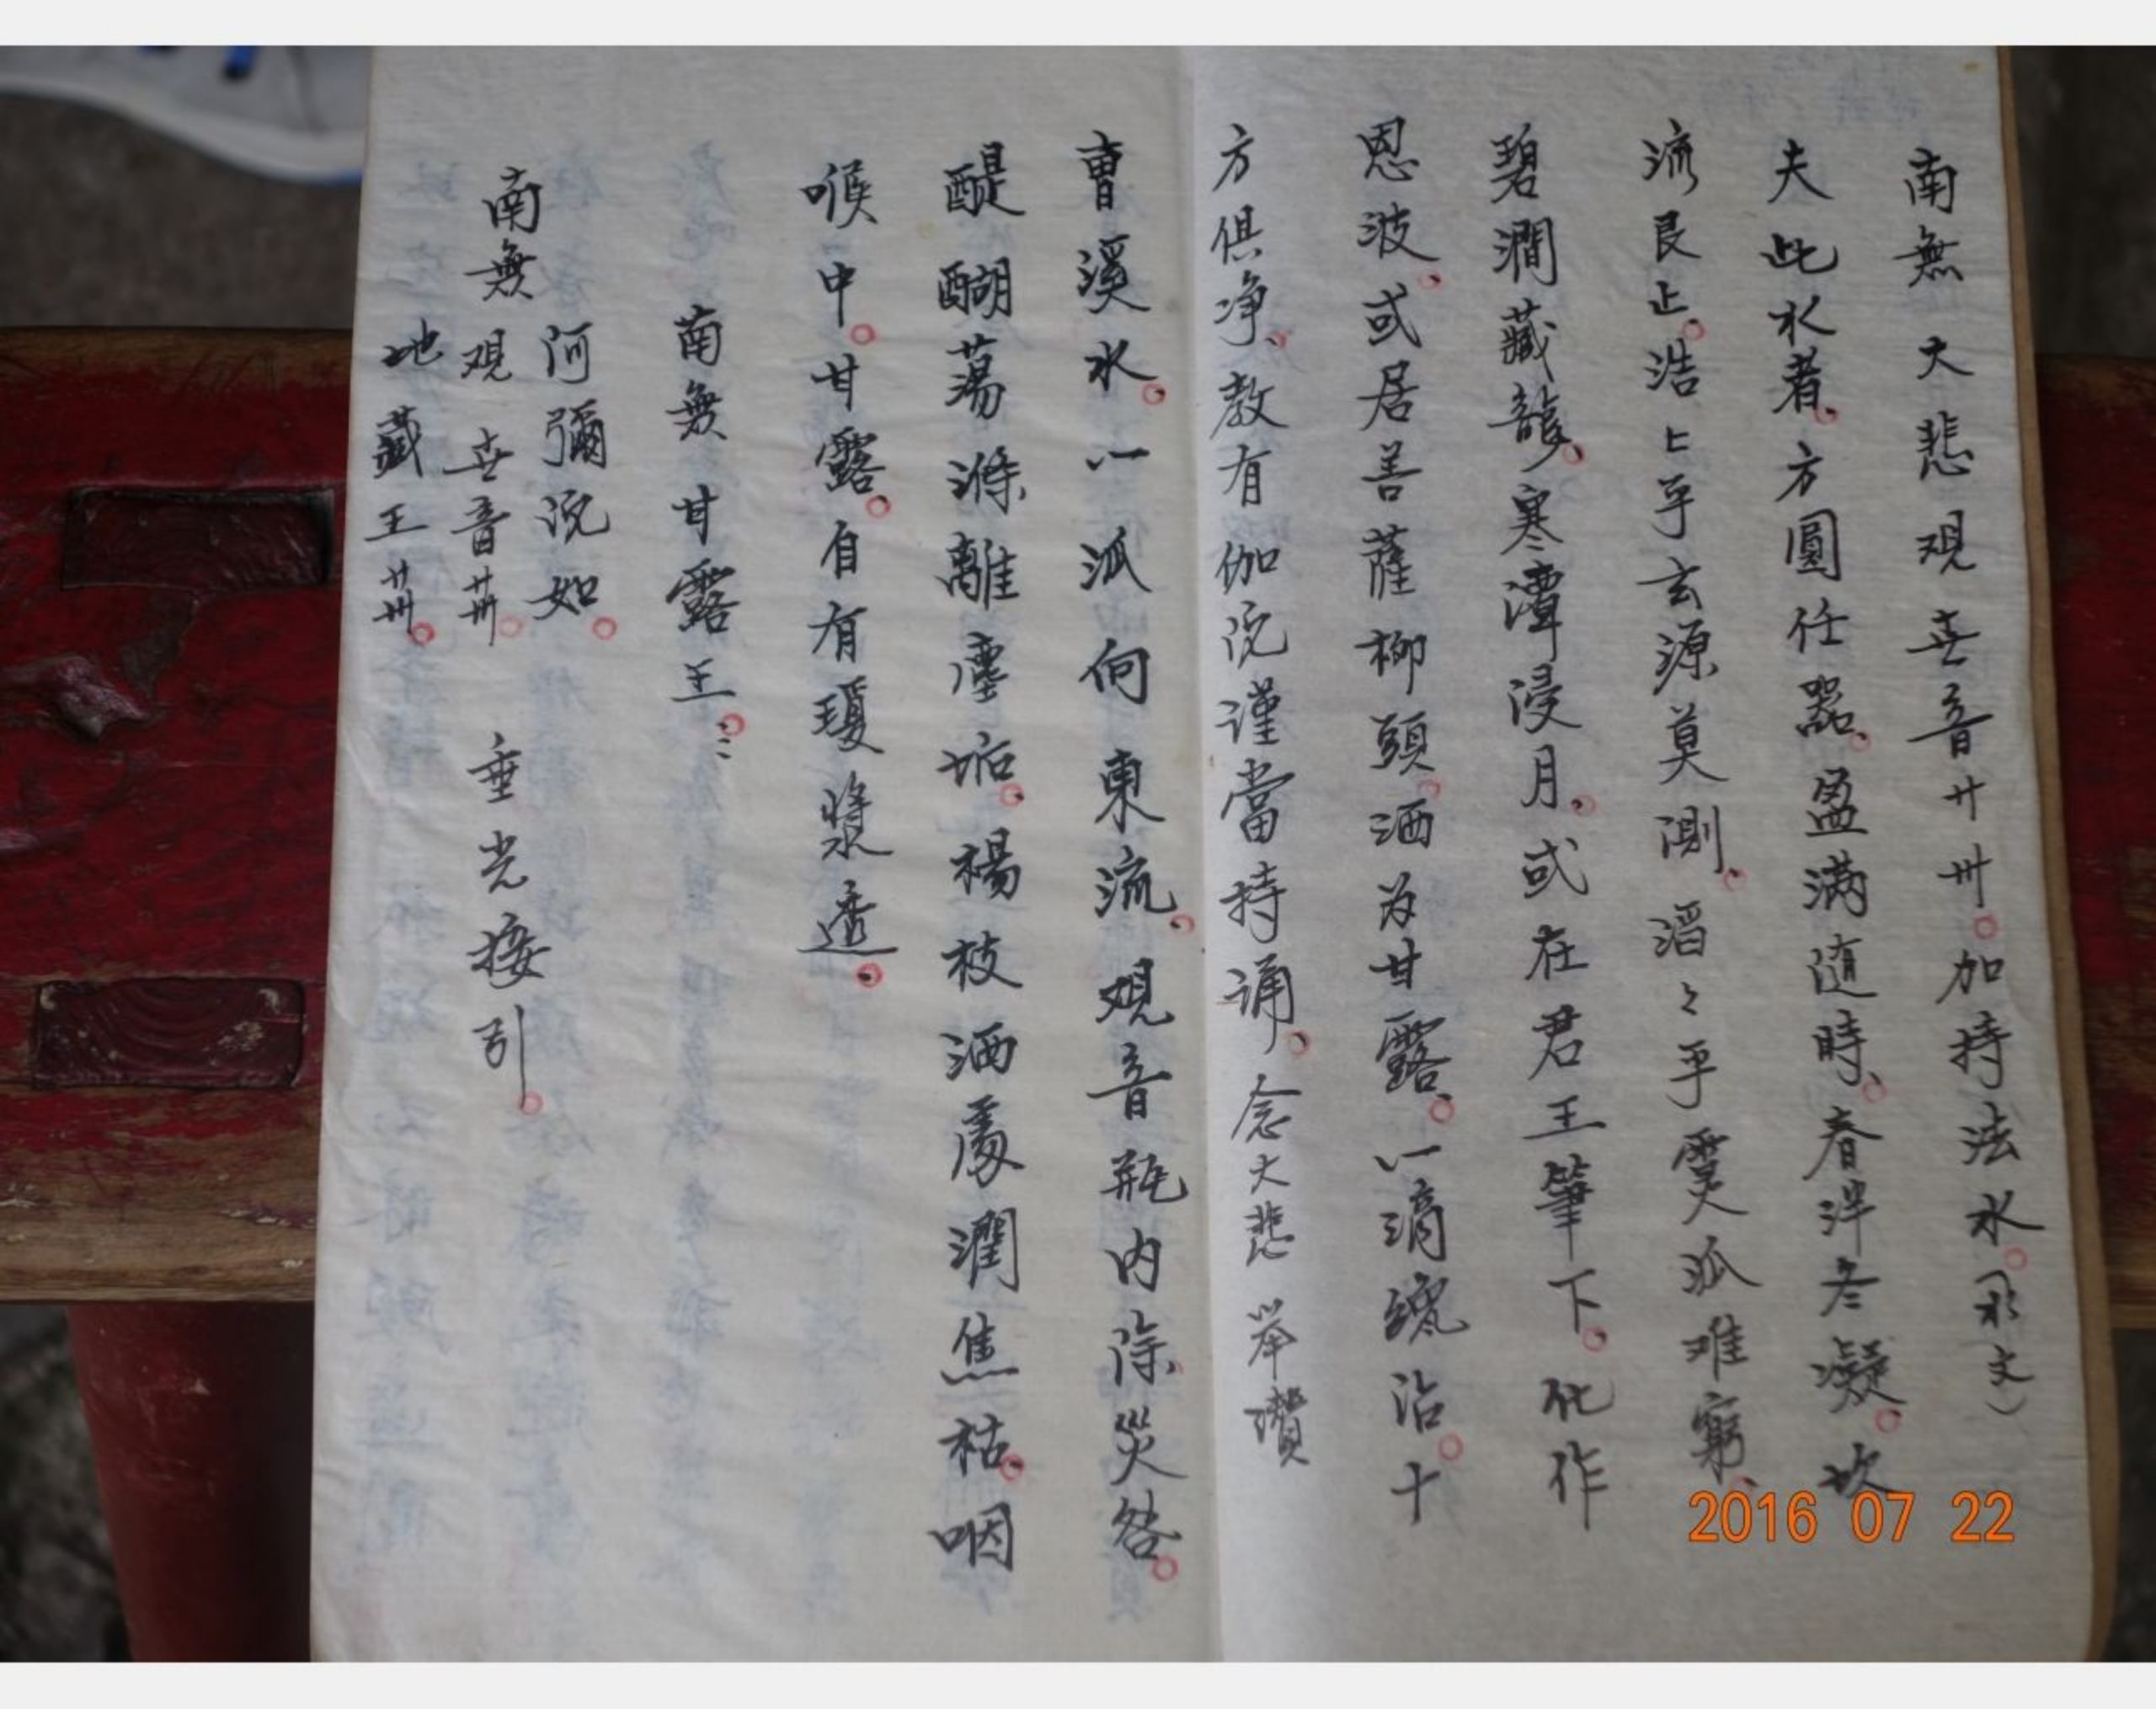 南無大悲观世音廾卅。加持法水。水文)
夫此水者。方圓任器。盈满随時。春泮冬凝。坎
流艮止。浩々乎玄源莫測。滔々乎靈派难窮。
碧澗藏龍。寒潭浸月。或在君王筆下。化作
恩波。或居善薩柳頭。洒为甘露。一滴纔沾。十
方俱净。教有伽陀謹當持诵。念大悲 举讚
曹溪水。一派向東流。观音瓶内除災咎。
醍醐荡滌離塵垢。楊枝洒處潤焦枯。咽
喉中。甘露。自有瓊漿透。
南無甘露王。
南無
阿彌陀如。
观世音𦬇。
地藏王𦬇。
垂光接引。
2016 07 22